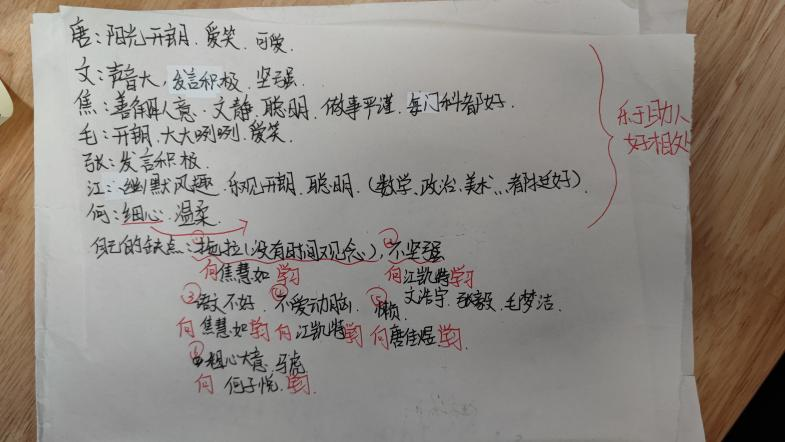 唐：阳光开朗、爱笑、可爱.
文：声音大，发言积极、坚强.
焦：善解人意、文静、聪明、做事严谨、每门科都好.
毛：开朗、大大咧咧、爱笑.
张：发言积极.
江：幽默风趣、乐观开朗、聪明.（数学、政治、美术、、都挺好）.
何：细心、温柔.
乐于助人
好相处
自己的缺点：①拖拉(没有时间观念)，②不坚强
向焦慧如学习 向江凯特学习
文浩宇、张毅、毛梦洁.
③语文不好. ④不爱动脑. ⑤懒.
向焦慧如学习 向江凯特学习 向唐佳煜学习.
⑥粗心大意、马虎
向何子悦学习.